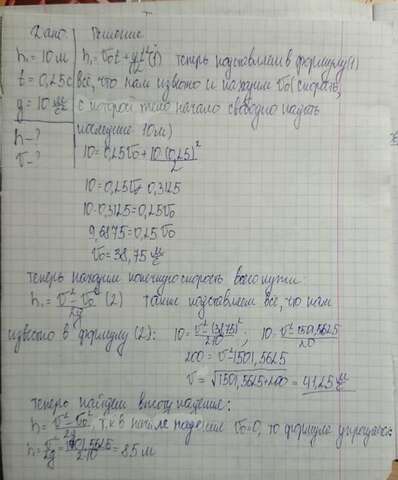 Дано: Решение
h₁ = 10 м h₁ = v₀t + gt²/2 (1) теперь подставляем в формулу (1)
t = 0,25 с всё, что нам известно и находим v₀ (скорость,
g = 10 м/с² с которой тело начало свободно падать
h - ? последние 10 м)
v - ?
10 = 0,25v₀ + 10·(0,25)²/2
10 = 0,25v₀ + 0,3125
10 - 0,3125 = 0,25v₀
9,6875 = 0,25v₀
v₀ = 38,75 м/с
теперь находим конечную скорость всего пути
h₁ = v² - v₀²/2g (2) также подставляем всё, что нам
известно в формулу (2): 10 = v² - (38,75)²/2·10 ; 10 = v² - 1501,5625/20
200 = v² - 1501,5625
v = √1501,5625 + 200 = 41,25 м/с
теперь найдем высоту падения:
h = v² - v₀²/2g, т.к в начале падения v₀ = 0, то формула
h = v²/2g = 1701,5625/2·10 = 85 м